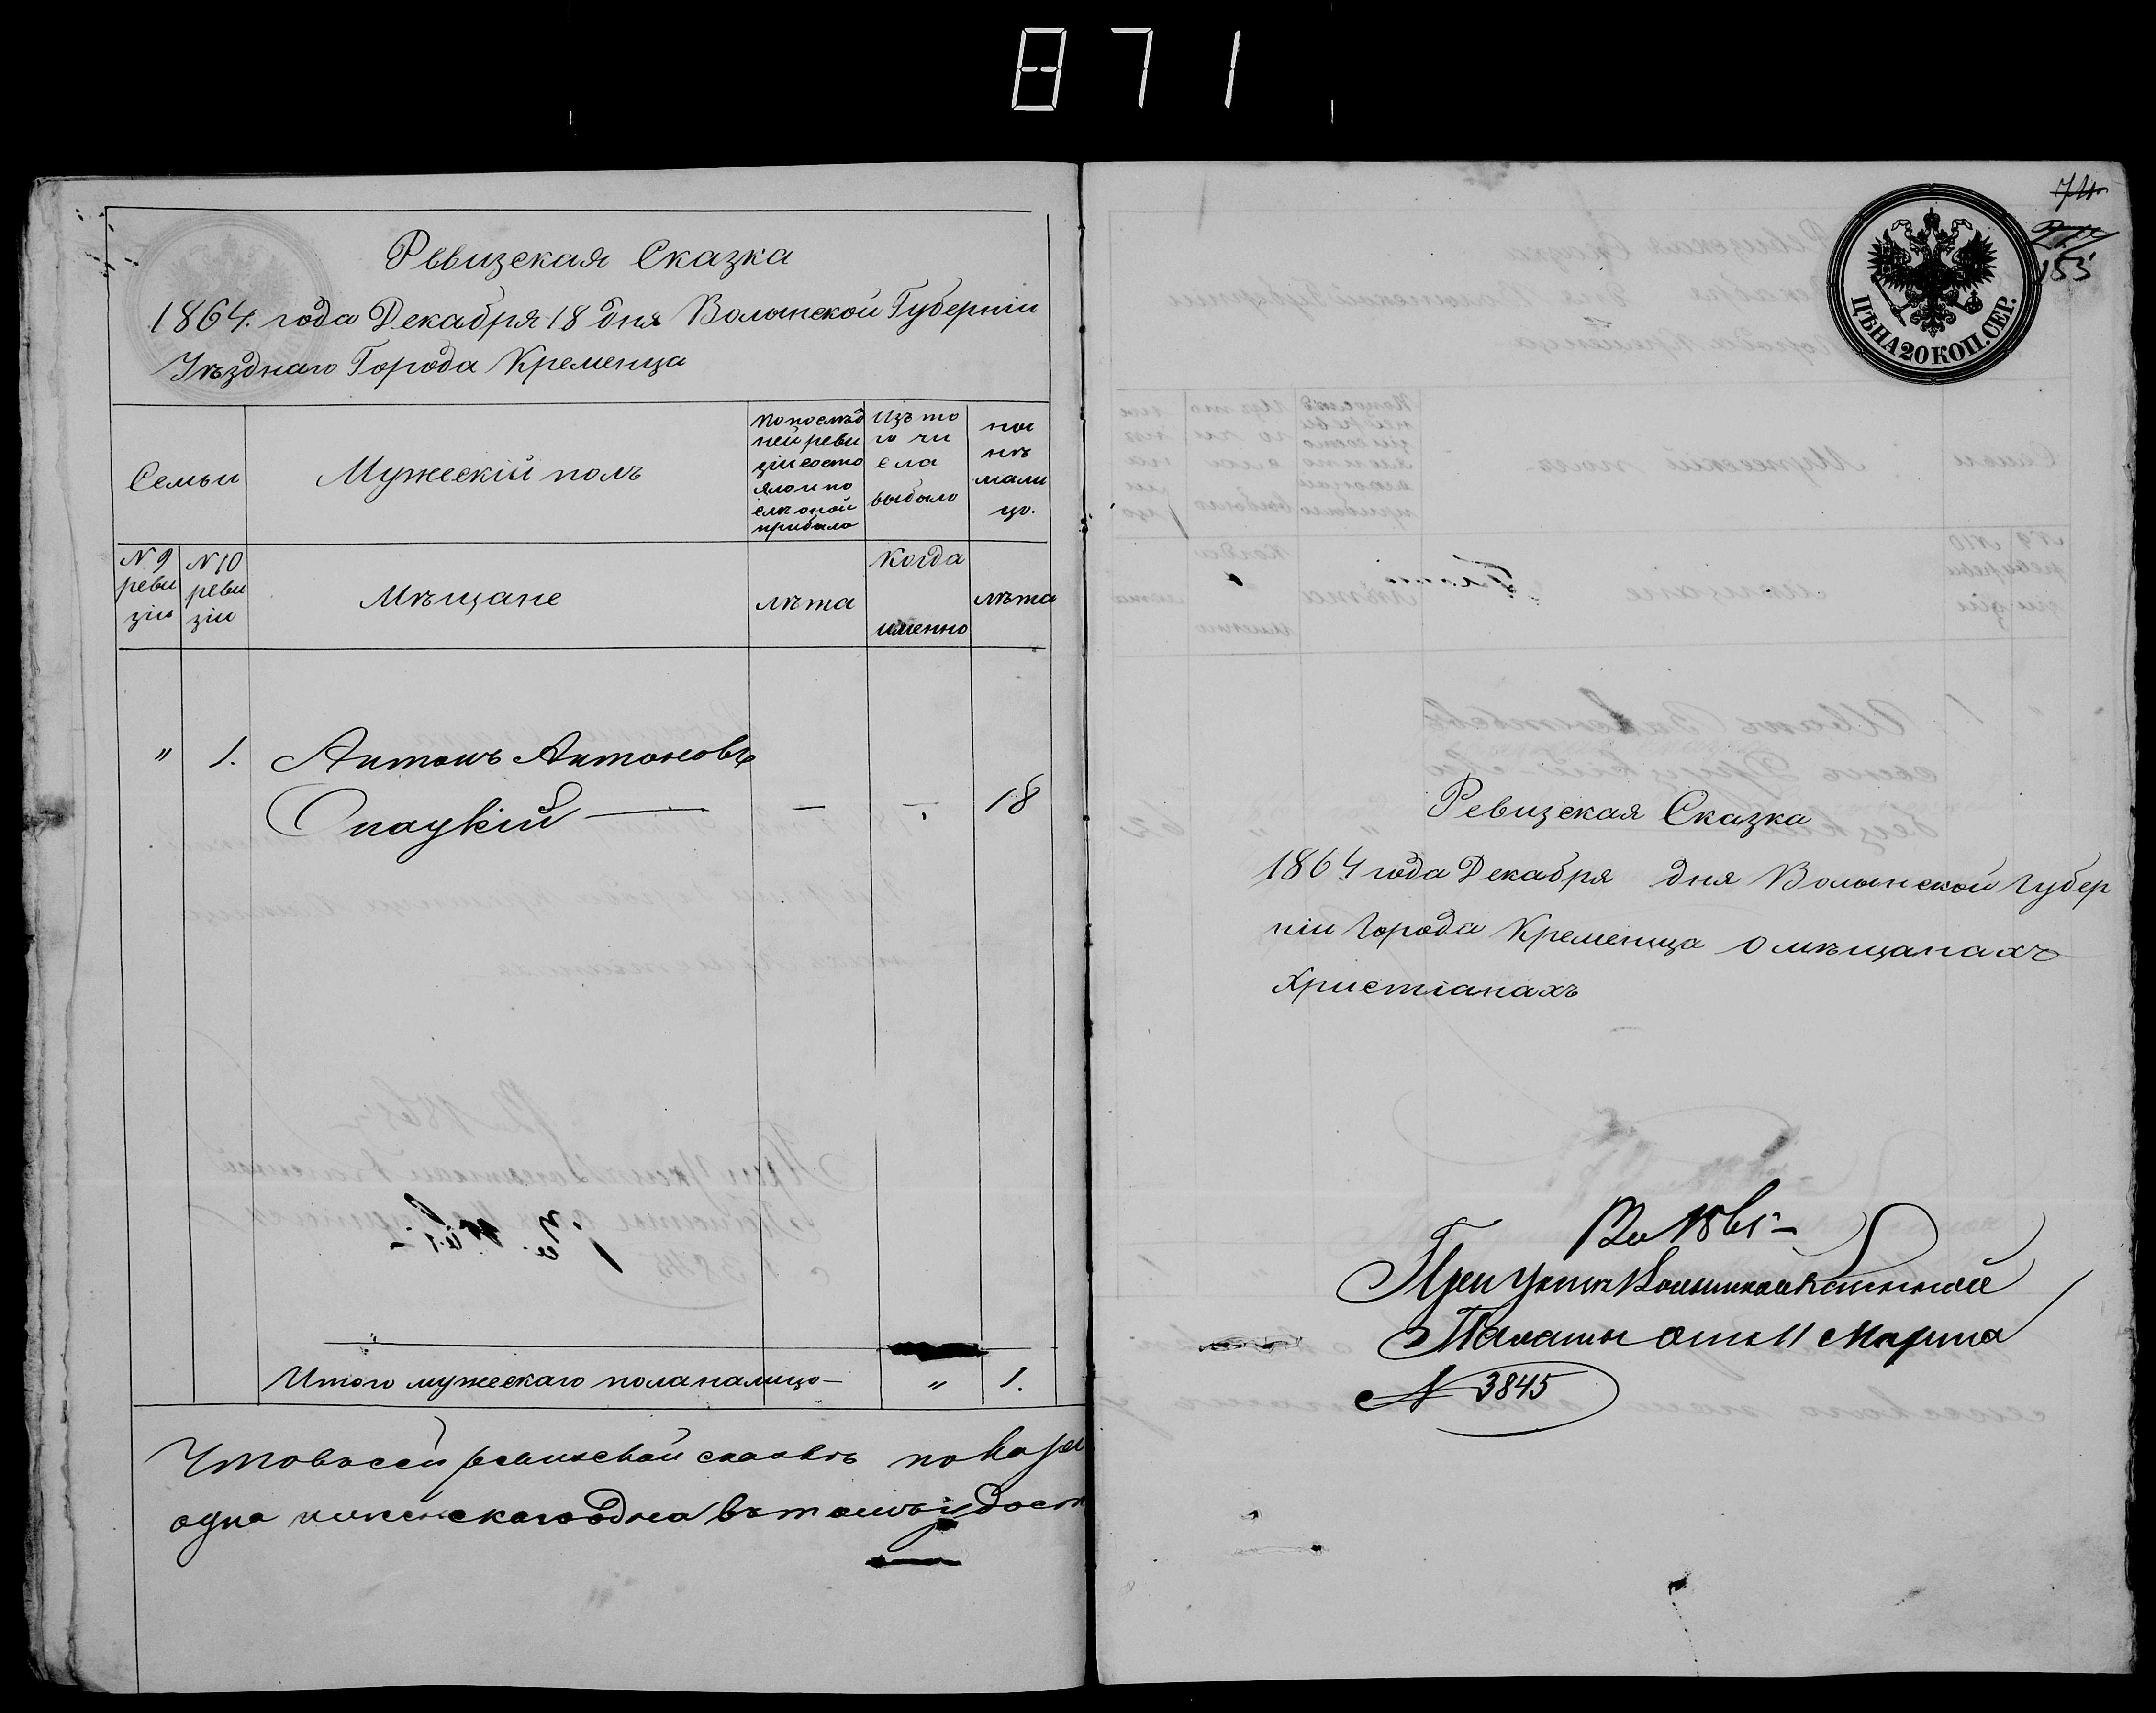 871
Ревизская Сказка
1864. года Декабря 18 дня Волынской Губерніи
Уѣзднаго Города Кременца
Семьи
Мужескій полъ
По послѣд
ней реви
зіи состо
яло и по
слѣ оной
прибыло
Изъ то
го чи
сла
выбыло
ны
нѣ
на ли
цо.
N 9
реви
зіи
N 10
реви
зіи
Мѣщане
лѣта
когда
именно
лѣта
" 1. Антонъ Антоновъ
Опацкій — — — 18
Итого мужескаго пола на лицо — " 1.
Что въ сей ревизской сказкѣ показа
одна женскаго одна въ томъ и дост
74
153
ЦѢНА 20 КОП. СЕР.
Ревизская Сказка
1864 года Декабря дня Волынской Губер
ніи Города Кременца о мѣщанахъ
Христіанахъ
Волынской Казенной
Палаты отъ 11 Марта
N 3845